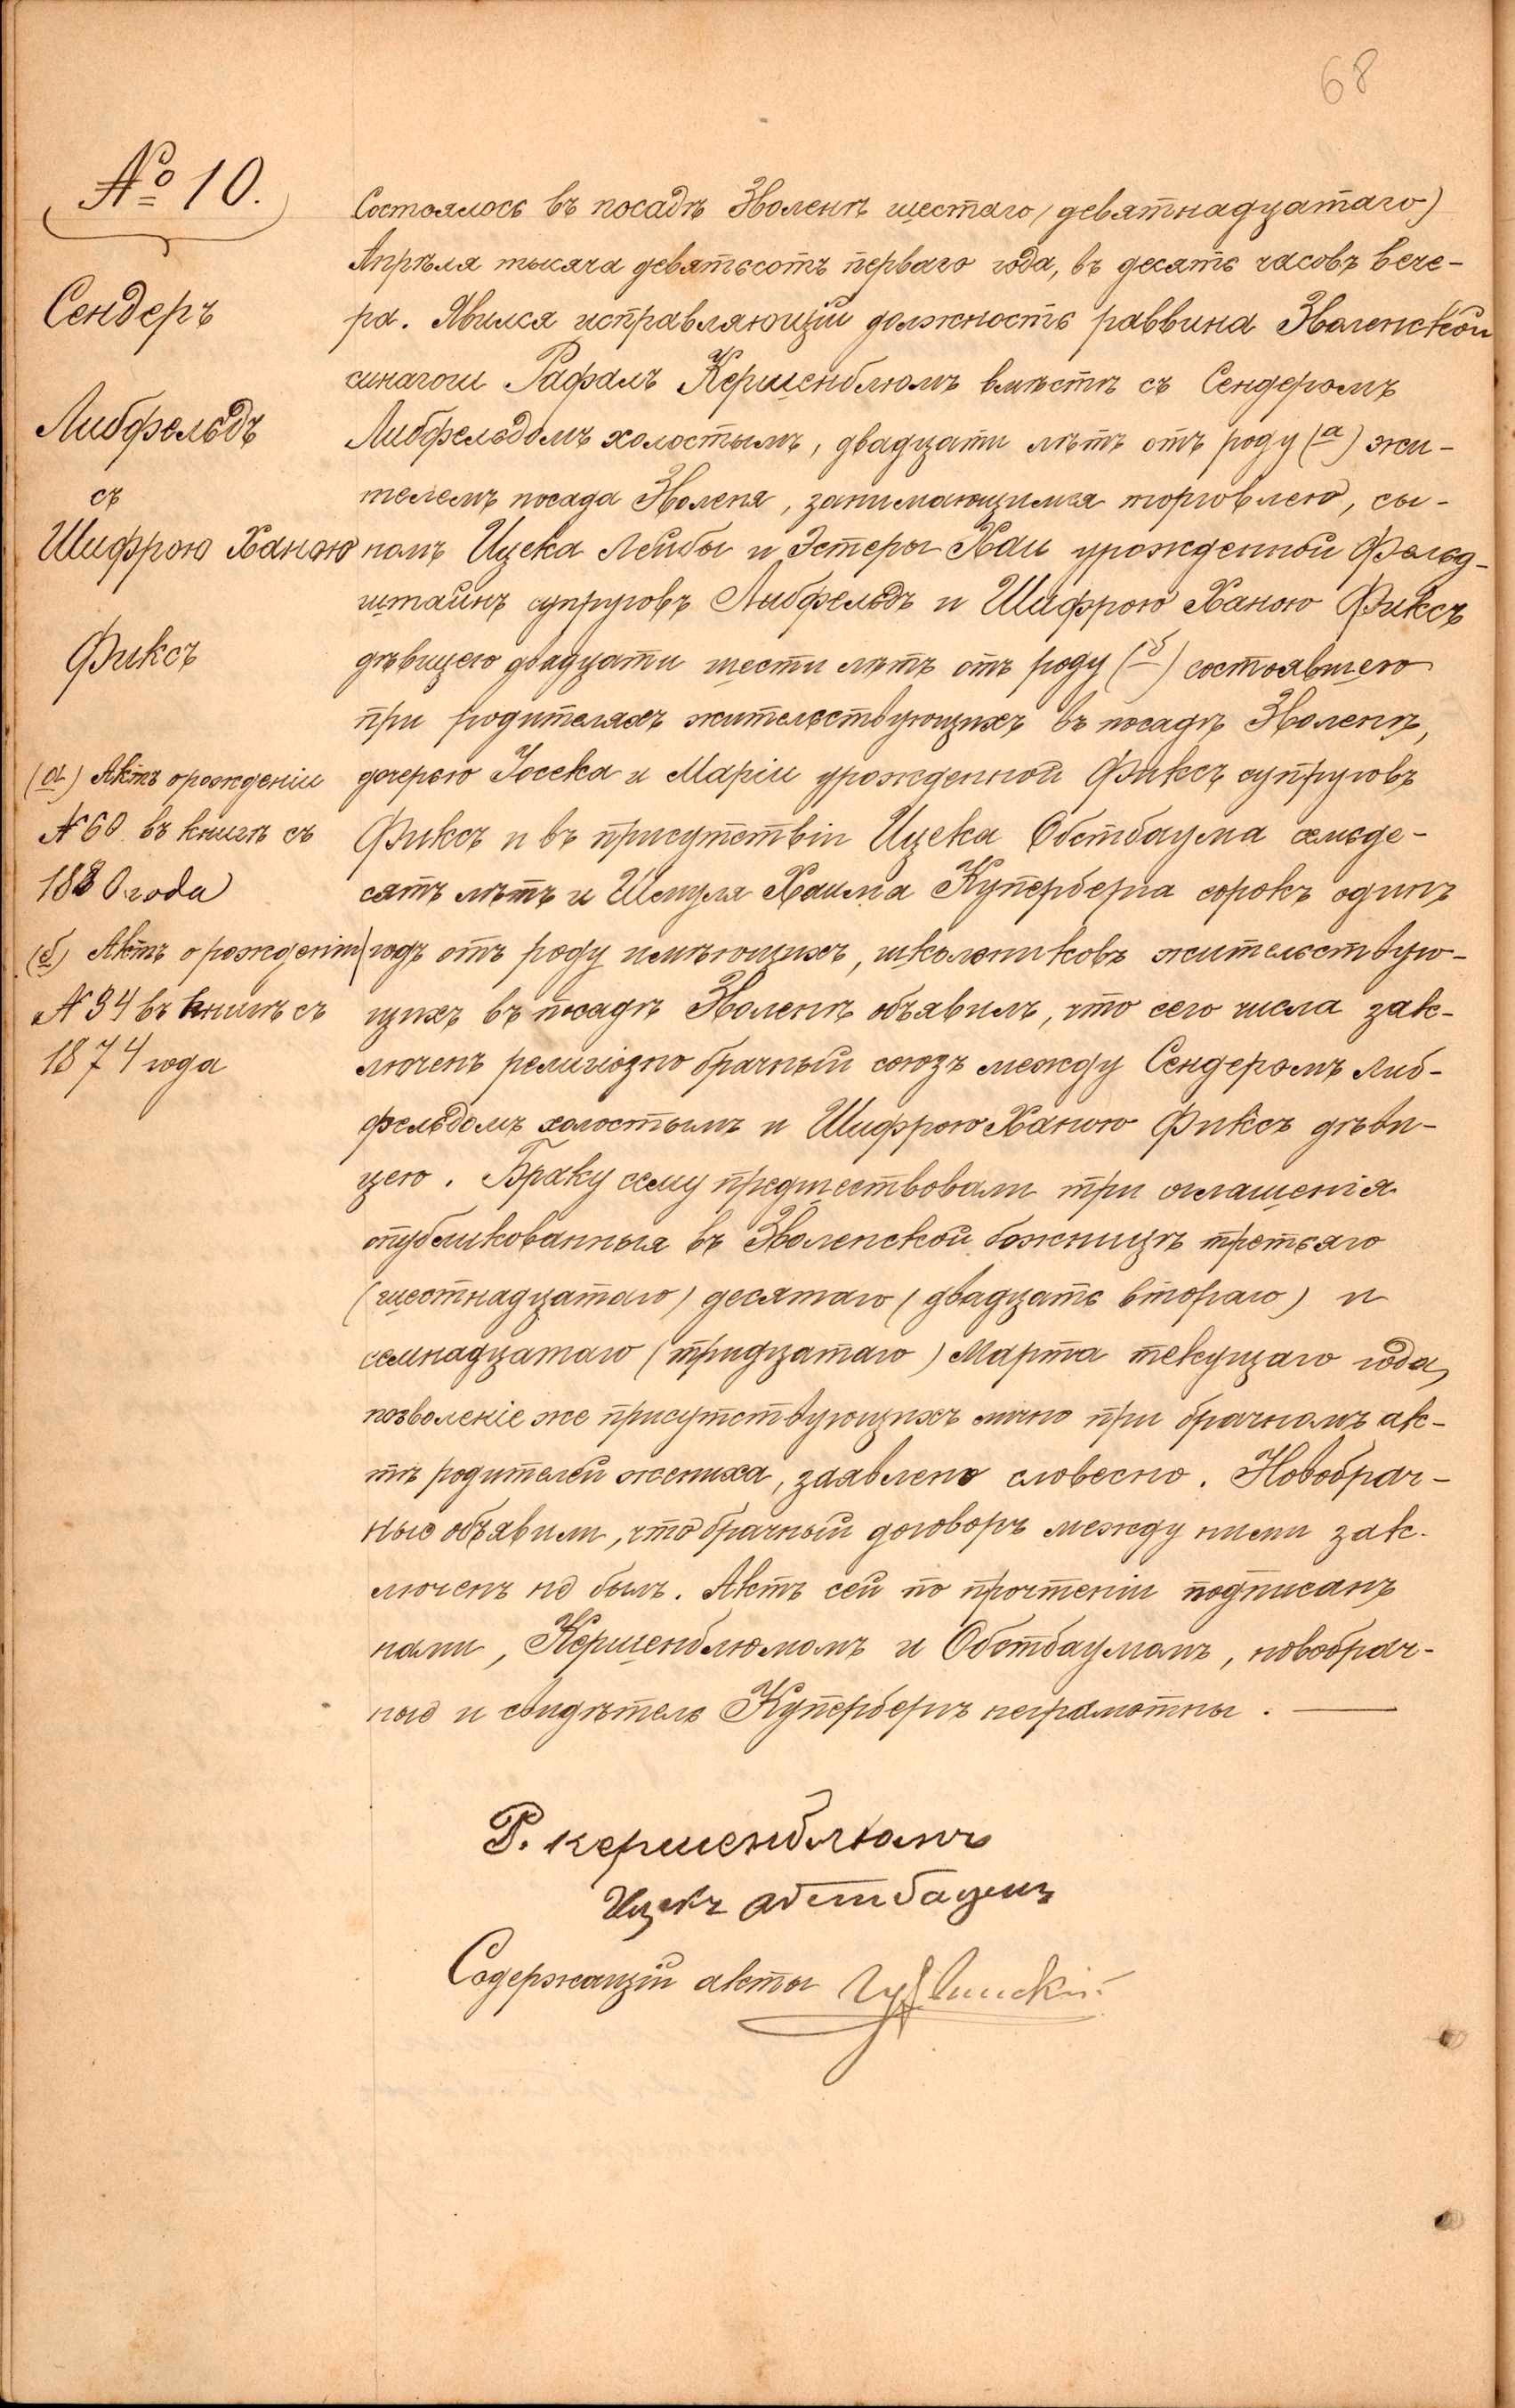 68
№ 10.
Сендеръ
Либфельдъ
съ
Шифрою Ханою
Фиксъ
(а) Актъ о рожденіи
№ 60 въ книгѣ съ
1880 года
(б) Актъ о рожденіи
№ 94 въ книгѣ съ
1874 года
Состоялось въ посадѣ Зволенѣ шестаго (девятнадцатаго)
Апрѣля тысяча девятьсотъ перваго года, въ десять часовъ вече-
ра. Явился исправляющій должность раввина Зволенской
синагоги Рафалъ Кершенблюмъ вмѣстѣ съ Сендеромъ
Либфельдомъ холостымъ, двадцати лѣтъ отъ роду (а) жи-
телемъ посада Зволеня, занимающимся торговлею, сы-
номъ Ицека Лейбы и Эстеры Хаи урожденной Фельд-
штайнъ супруговъ Либфельдъ и Шифрою Ханою Фиксъ
дѣвицею двадцати шести лѣтъ отъ роду (б) состоявшею
при родителяхъ жительствующихъ въ посадѣ Зволенѣ,
дочерью Іосека и Маріи урожденной Фиксъ супруговъ
Фиксъ и въ присутствіи Ицека Обстбаума семьде-
сятъ лѣтъ и Шмуля Хаима Куперберга сорокъ одинъ
годъ отъ роду имѣющихъ, школьниковъ жительствую-
щихъ въ посадѣ Зволенѣ объявилъ, что сего числа зак-
люченъ религіозно брачный союзъ между Сендеромъ Либ-
фельдомъ холостымъ и Шифрою Ханою Фиксъ дѣви-
цею. Браку сему предшествовали три оглашенія
опубликованныя въ Зволенской божницѣ третьяго
(шестнадцатаго) десятаго (двадцать втораго) и
семнадцатаго (тридцатаго) Марта текущаго года,
позволеніе же присутствующихъ лично при брачномъ ак-
тѣ родителей жениха, заявлено словесно. Новобрач-
ные объявили, что брачный договоръ между ними зак-
люченъ не былъ. Актъ сей по прочтеніи подписанъ
нами, Кершенблюмомъ и Обстбаумомъ, новобрач-
ные и свидѣтель Купербергъ неграмотны.
Р. Кершенблюмъ
Ицекъ Обстбаумъ
Содержащій акты